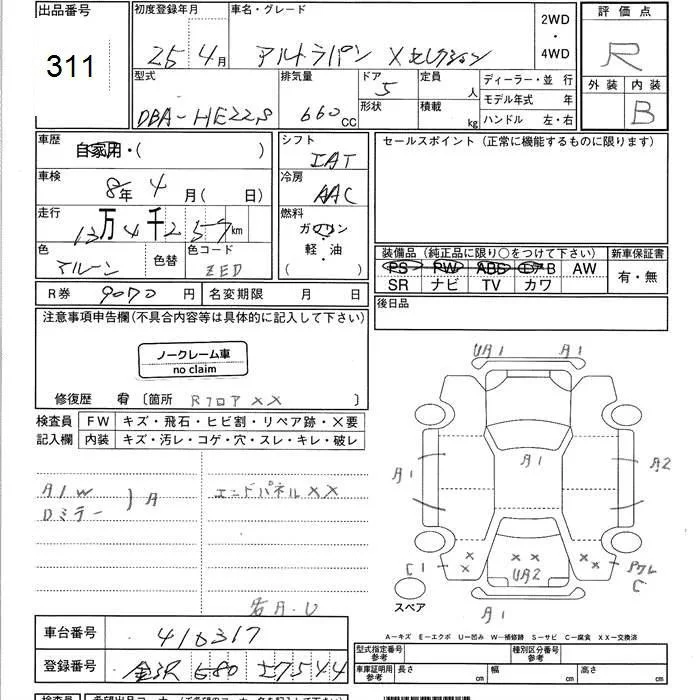 出品番号
311
初度登録年月
25 4月
車名・グレード
アルトラパン Xセレクション
2WD
・
4WD
評価点
R
外装 内装
B
型式
DBA-HE22S
排気量
660cc
ドア 5
形状
定員 人
積載 kg
ディーラー・並 行
モデル年式 年
ハンドル 左・右
車歴
自家用・( )
車検
8年 4月( 日)
走行
13万4千257km
色
マルーン
色替
色コード
ZED
シフト
IAT
冷房
AAC
燃料
ガソリン
軽・油
( )
セールスポイント(正常に機能するものに限ります)
装備品(純正品に限り○をつけて下さい)
新車保証書
PS PW ABS エアB AW
SR ナビ TV カワ
有・無
R券 9070円
名変期限 月 日
後日品
注意事項申告欄(不具合内容等は具体的に記入して下さい)
ノークレーム車
no claim
修復歴 有 〔箇所 Rフロア XX 〕
検査員
記入欄
FW キズ・飛石・ヒビ割・リペア跡・X要
内装 キズ・汚レ・コゲ・穴・スレ・キレ・破レ
A/W
Dミラー
A
エンドパネルXX
若A.U
UA1 A1
A1 A1 A2
C1 UA2 C
A1
スペア
A-キズ E-エクボ U-凹み W-補修跡 S-サビ C-腐食 XX-交換済
車台番号
416317
登録番号
金沢 580 7544
型式指定番号
参考
種別区分番号
参考
車庫証明用
参考
長さ cm
幅 cm
高さ cm